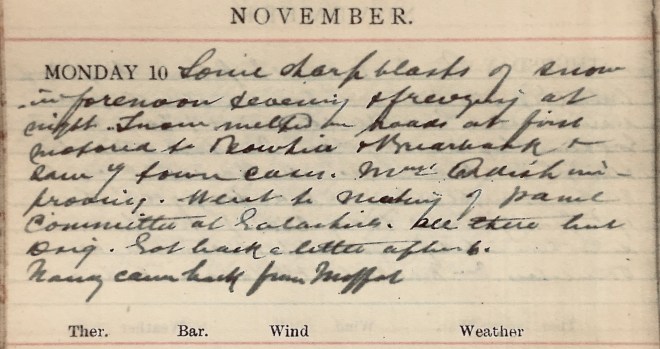 NOVEMBER.
MONDAY 10 Some sharp blasts of snow
in forenoon & evening & freezing at
night. Snow melted on roads at first
motored to & Briarbank &
saw 7 town cases. Mrs. im-
proving. Went to meeting of panel
Committee at Galashiels. All there but
Doig. Got back a little after 6.
Nancy came back from Moffat
Ther. Bar. Wind Weather